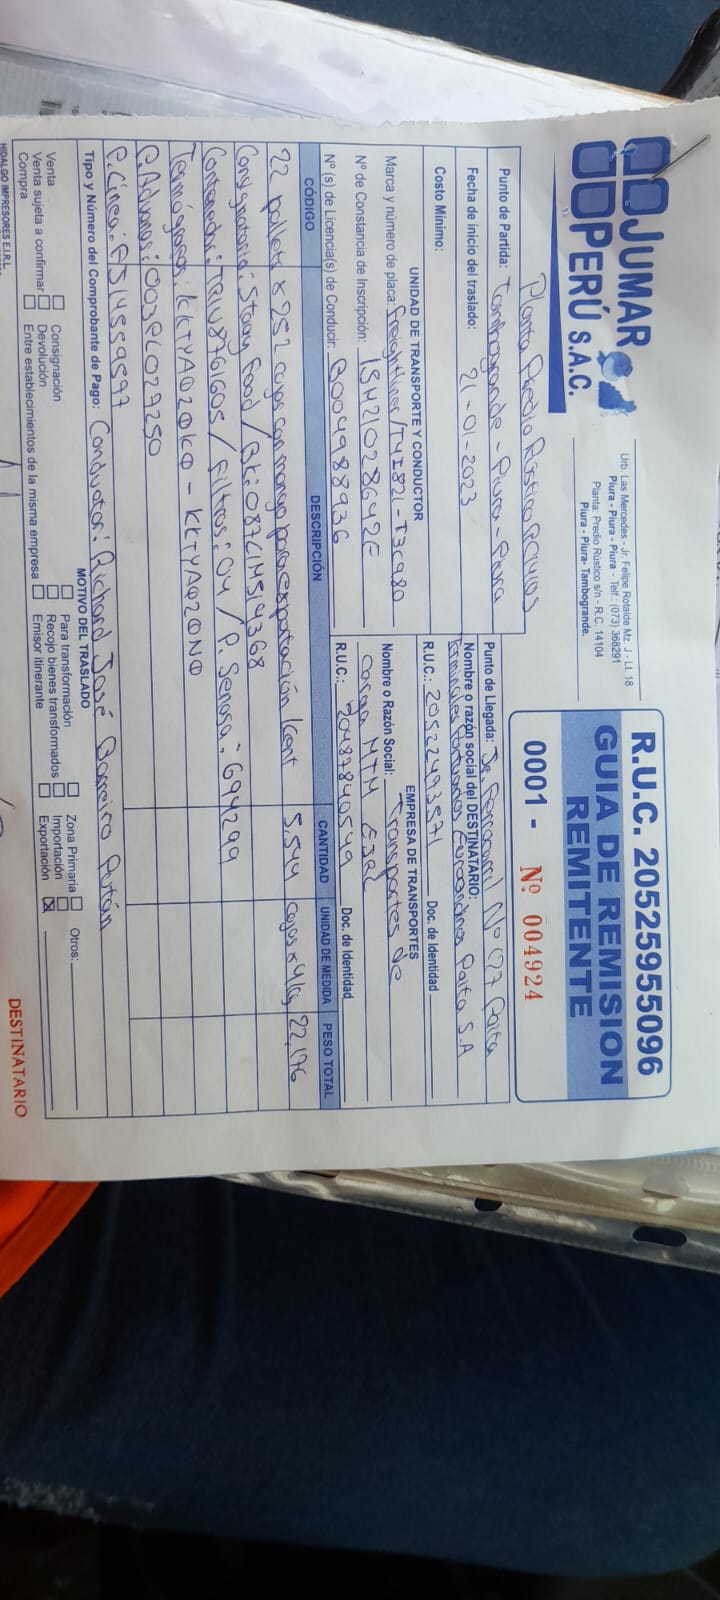 JUMAR
PERÚ S.A.C.
Urb. Las Mercedes - Jr. Felipe Rotalde Mz. J - Lt. 18
Piura - Piura - Piura - Telf.: (073) 368291
Planta: Predio Rústico s/n - R.C. 14104
Piura - Piura- Tambogrande.
R.U.C. 20525955096
GUIA DE REMISION
REMITENTE
0001 - Nº 004924
Planta Predio Rústico RC14105
Punto de Partida: Tambogrande - Piura - Piura
Fecha de inicio del traslado: 21-01-2023
Costo Mínimo:
Punto de Llegada: Jr. Ferrocarril Nº 127 Paita
Nombre o razón social del DESTINATARIO:
Terminales Portuarios Euroandinos Paita S.A
R.U.C.: 20522493571 Doc. de Identidad
UNIDAD DE TRANSPORTE Y CONDUCTOR
Marca y número de placa: Freightliner/T4I821-T3C980
Nº de Constancia de Inscripción: 15M21028642E
Nº (s) de Licencia(s) de Conducir: B004988936
EMPRESA DE TRANSPORTES
Nombre o Razón Social: Transportes de
Carga MTM EIRL
R.U.C.: 20487840549 Doc. de Identidad
CÓDIGO DESCRIPCIÓN CANTIDAD UNIDAD DE MEDIDA PESO TOTAL
22 pallets x 252 cajas con mango para exportación Kent 5,544 cajas x 4kg 22,176
Consignatario: Stay Food / BK: 087LIM514368
Contenedor: TRIU8761605 / Filtros: 04 / P. Senasa: 694299
Termógrafos: KKTYA020K0 - KKTYA020N0
P. Aduanas: 003PL029250
P. Línea: PJ14559597
Tipo y Número del Comprobante de Pago: Conductor: Richard José Barreiro Purizán
MOTIVO DEL TRASLADO
Venta Consignación Para transformación Zona Primaria Otros:
Venta sujeta a confirmar Devolución Recojo bienes transformados Importación
Compra Entre establecimientos de la misma empresa Emisor itinerante Exportación X
HIDALGO IMPRESORES E.I.R.L
DESTINATARIO